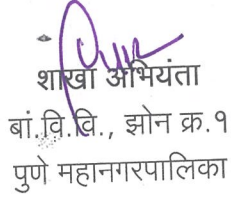 शाखा अभियंता
बां.वि.वि., झोन क्र.१
पुणे महानगरपालिका